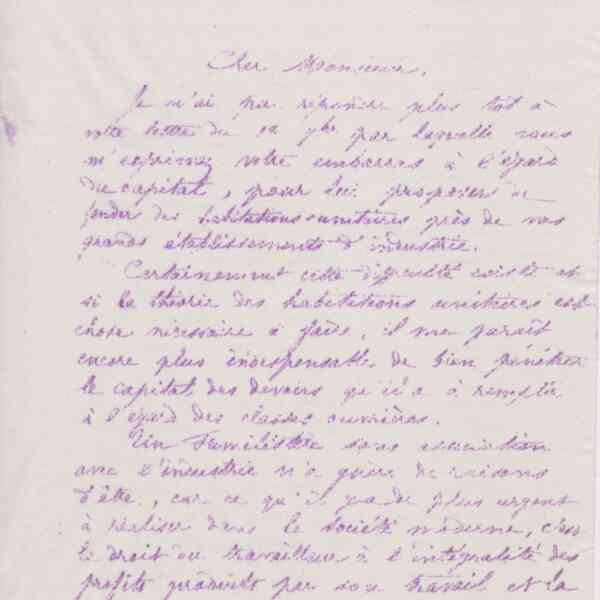 Cher Monsieur,
Je n'ai pu répondre plus tôt à
votre lettre du par laquelle vous
m'exprimez votre embarras à l'égard
du capital, pour lui proposer de
fonder des habitations unitaires près de nos
grands établissements d'industrie.
Certainement cette difficulté existe et
si la théorie des habitations unitaires est
chose nécessaire à faire, il me paraît
encore plus indispensable de bien pénétrer
le capital des devoirs qu'il a à remplir
à l'égard des classes ouvrières.
Un Familistère sans association
avec l'industrie n'a guère de raisons
d'être, car ce qu'il y a de plus urgent
à réaliser dans la société moderne, c'est
le droit du travailleur à l'intégralité des
profits produits par son travail et la